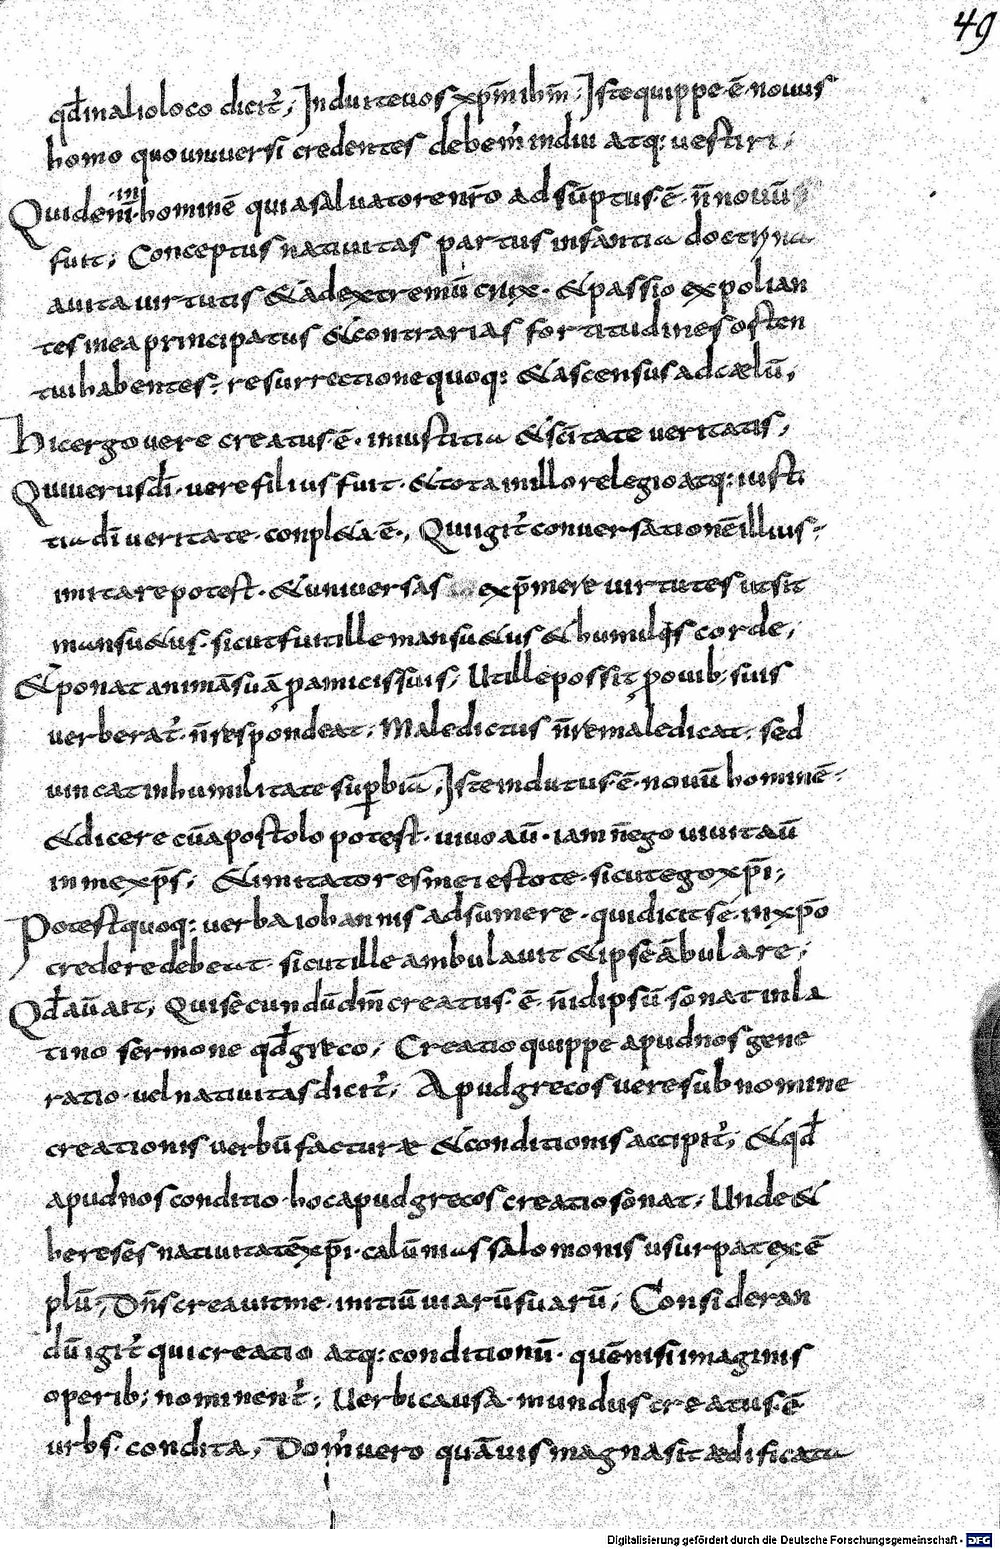 49
qđ in alio loco dicit̅; Induite uos xpm̅ ihm̅; Iste quippe · ē · nouus
homo quo uniuersi credentes debem̅ indui atq: uestiri;
Quid eni̅m · in homine̅ qui a saluatore nr̅o adsu̅ptus · ē · n̅ nouu̅
fuit; Conceptus natiuitas partus infantia doctrina
auita uirtutis & ad extremu̅ crux · & passio expolian
tes in ea principatus & contrarias fortitudines osten
tui habentes; resurrectione quoq: & ascensus ad cælu̅,
Hic ergo uere creatus · ē · in iustitia & sci̅tate ueritatis;
Qui uerus di̅ · uere filius fuit · & tota in illo relegio atq: iusti
tia di̅ ueritate · conpl&a ē ·, Qui igit̅ conuersatione̅ illius ·
imitare potest · & uniuersas exp̅mere uirtutes ut sit
mansu&us · sicut fuit ille mansu&us & humilis corde;
& ponat anima̅ sua̅ p̱ amicis suis; Ut ille possit p̱ ouib; suis
uerberat̅ · n̅ respondeat; Maledictus n̅ remaledicat · sed
uincat in humilitate sup̱bia̅; Iste indutus · ē · nouu̅ homine̅ ·
& dicere cu̅ apostolo potest · uiuo au̅ · iam n̅ ego uiuit au̅
in me xp̅s; & imitatores mei estote · sicut ego xpi̅;
Potest quoq: uerba iohannis adsumere · qui dicit se · in xpo̅
credere debeat · sicut ille ambulauit & ipse a̅bulare;
Qđ au̅ ait, Qui secundu̅ dm̅ creatus · ē · n̅ id ipsu̅ sonat in la
tino sermone qđ greco; Creatio quippe apud nos gene
ratio · uel natiuitas dicit̅; Apud grecos uere sub nomine
creationis uerbu̅ facturæ & conditionis accipit̅; & qđ
apud nos conditio · hoc apud grecos creatio sonat; Unde &
hereses natiuitate̅ xpi̅ · calu̅nias salomonis usurpat exe̅
plu̅; Dn̅s creauit me · initiu̅ uiaru̅ suaru̅; Consideran
du̅ igit̅ qui creatio atq: conditionu̅ · que̅ nisi in maginis
operib; nominent̅; Uerbi causa · mundus creatus · ē
urbs · condita, Dom̅ uero qua̅uis magna sit ædificata
Digitalisierung gefördert durch die Deutsche Forschungsgemeinschaft - DFG